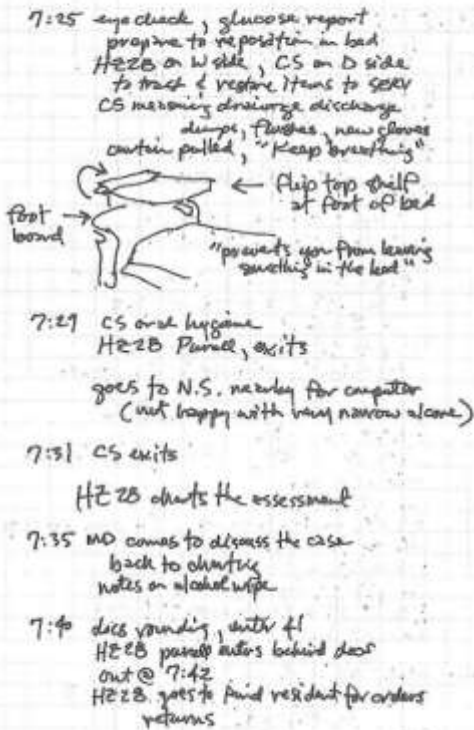 7:25 eye check, glucose report
prepare to reposition in bed
HE2B on W side, CS on D side
to track & restore items to
CS measuring drainage discharge
dumps, flushes, new gloves
curtain pulled, "Keep breathing"
← flip top shelf
at foot of bed
foot →
board
"prevents you from leaving
something in the bed"
7:29 CS oral hygiene
HE2B Purell, exits
goes to N.S. nearby for computer
(not happy with very narrow alcove)
7:31 CS exits
HE2B charts the assessment
7:35 MD comes to discuss the case
back to charting
notes on alcohol wipe
7:40 docs rounding, enter
HE2B purell enters behind docs
out @ 7:42
HE2B goes to find resident for orders
returns